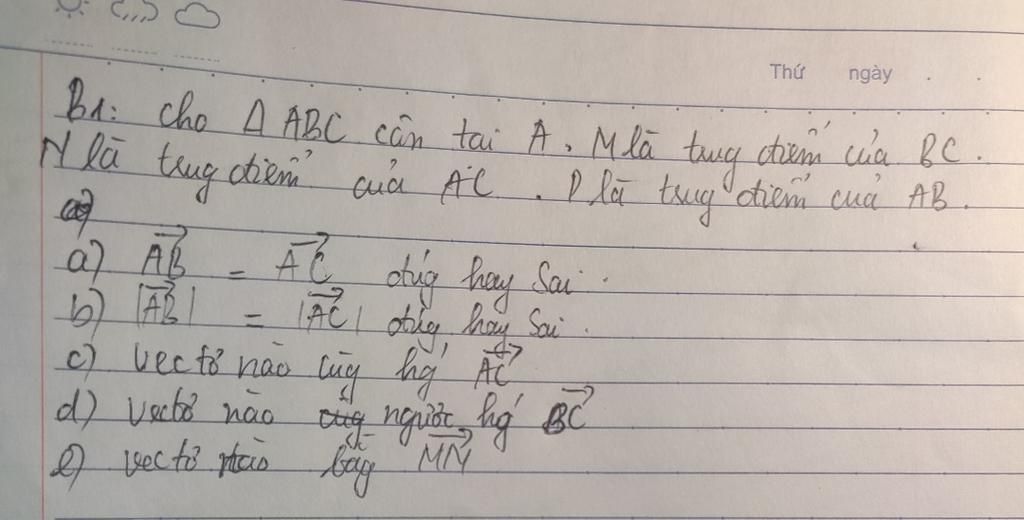 Thứ ngày
B1: Cho Δ ABC cân tại A. M là trug điểm của BC.
N là trug điểm của AC. D là trug điểm của AB.
a)
a) \overrightarrow{AB} = \overrightarrow{AC} đúg hay Sai.
b) |\overrightarrow{AB}| = |\overrightarrow{AC}| đúg hay Sai.
c) vectơ nào cùg hg' \overrightarrow{AC}
d) vectơ nào ngược hg' \overrightarrow{BC}
e) vectơ nào bằg \overrightarrow{MN}